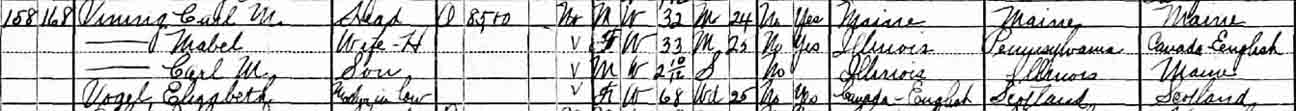 158 168 Vining Carl M. Head O 8500 No M W 32 M 24 No Yes Maine Maine Maine
—— Mabel Wife-H V F W 33 M 25 No Yes Illinois Pennsylvania Canada-English
—— Carl M. Son V M W 2 10/12 S No Illinois Illinois Maine
Vogel Elizabeth Mother in law V F W 68 Wd 25 No Yes Canada-English Scotland Scotland